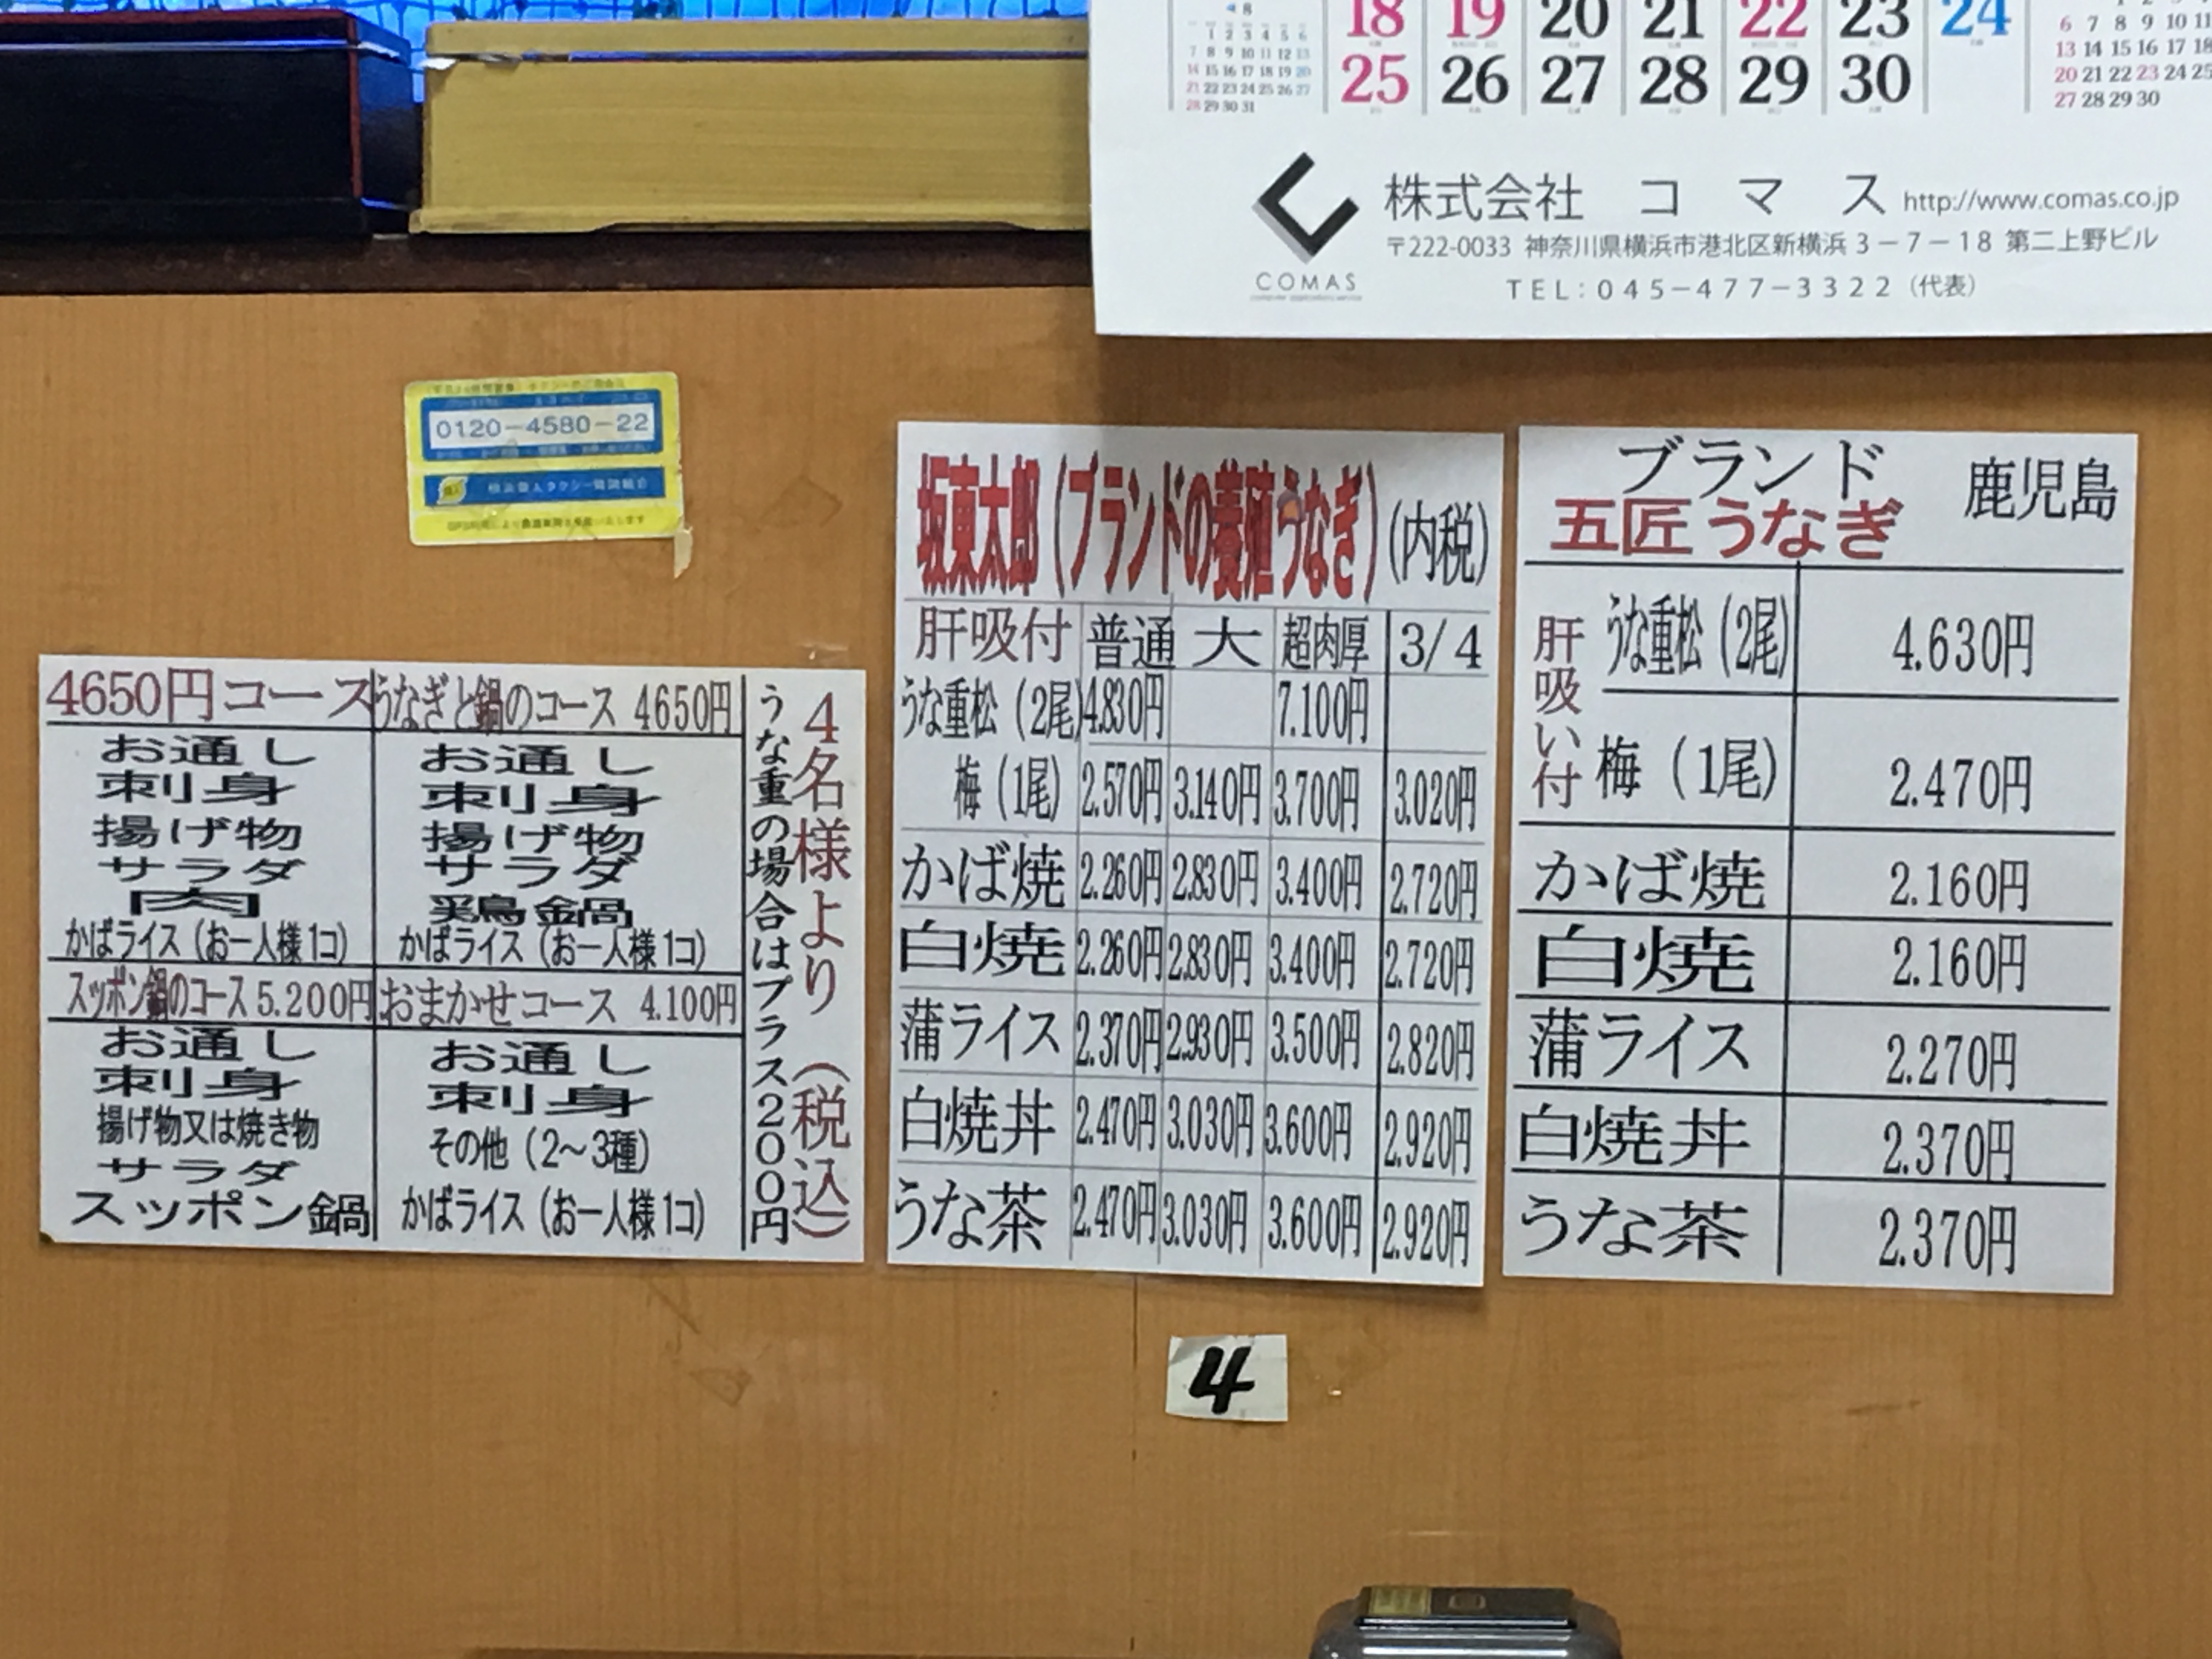 8
1 2 3 4 5 6
7 8 9 10 11 12 13
14 15 16 17 18 19 20
21 22 23 24 25 26 27
28 29 30 31
18 19 20 21 22 23 24
25 26 27 28 29 30
6 7 8 9 10 11
13 14 15 16 17 18
20 21 22 23 24 25
27 28 29 30
株式会社 コマス http://www.comas.co.jp
〒222-0033 神奈川県横浜市港北区新横浜3-7-18 第二上野ビル
COMAS
TEL:045-477-3322(代表)
0120-4580-22
4650円コース
お通し
刺身
揚げ物
サラダ
肉
かばライス(お一人様1コ)
うなぎと鍋のコース 4650円
お通し
刺身
揚げ物
サラダ
鶏鍋
かばライス(お一人様1コ)
スッポン鍋のコース5.200円
お通し
刺身
揚げ物又は焼き物
サラダ
スッポン鍋
おまかせコース 4.100円
お通し
刺身
その他(2〜3種)
かばライス(お一人様1コ)
4名様より(税込)
うな重の場合はプラス200円
坂東太郎(ブランドの養殖うなぎ)(内税)
肝吸付 普通 大 超肉厚 3/4
うな重松(2尾) 4.830円 7.100円
梅(1尾) 2.570円 3.140円 3.700円 3.020円
かば焼 2.260円 2.830円 3.400円 2.720円
白焼 2.260円 2.830円 3.400円 2.720円
蒲ライス 2.370円 2.930円 3.500円 2.820円
白焼丼 2.470円 3.030円 3.600円 2.920円
うな茶 2.470円 3.030円 3.600円 2.920円
ブランド
五匠うなぎ 鹿児島
肝吸い付
うな重松(2尾) 4.630円
梅(1尾) 2.470円
かば焼 2.160円
白焼 2.160円
蒲ライス 2.270円
白焼丼 2.370円
うな茶 2.370円
4